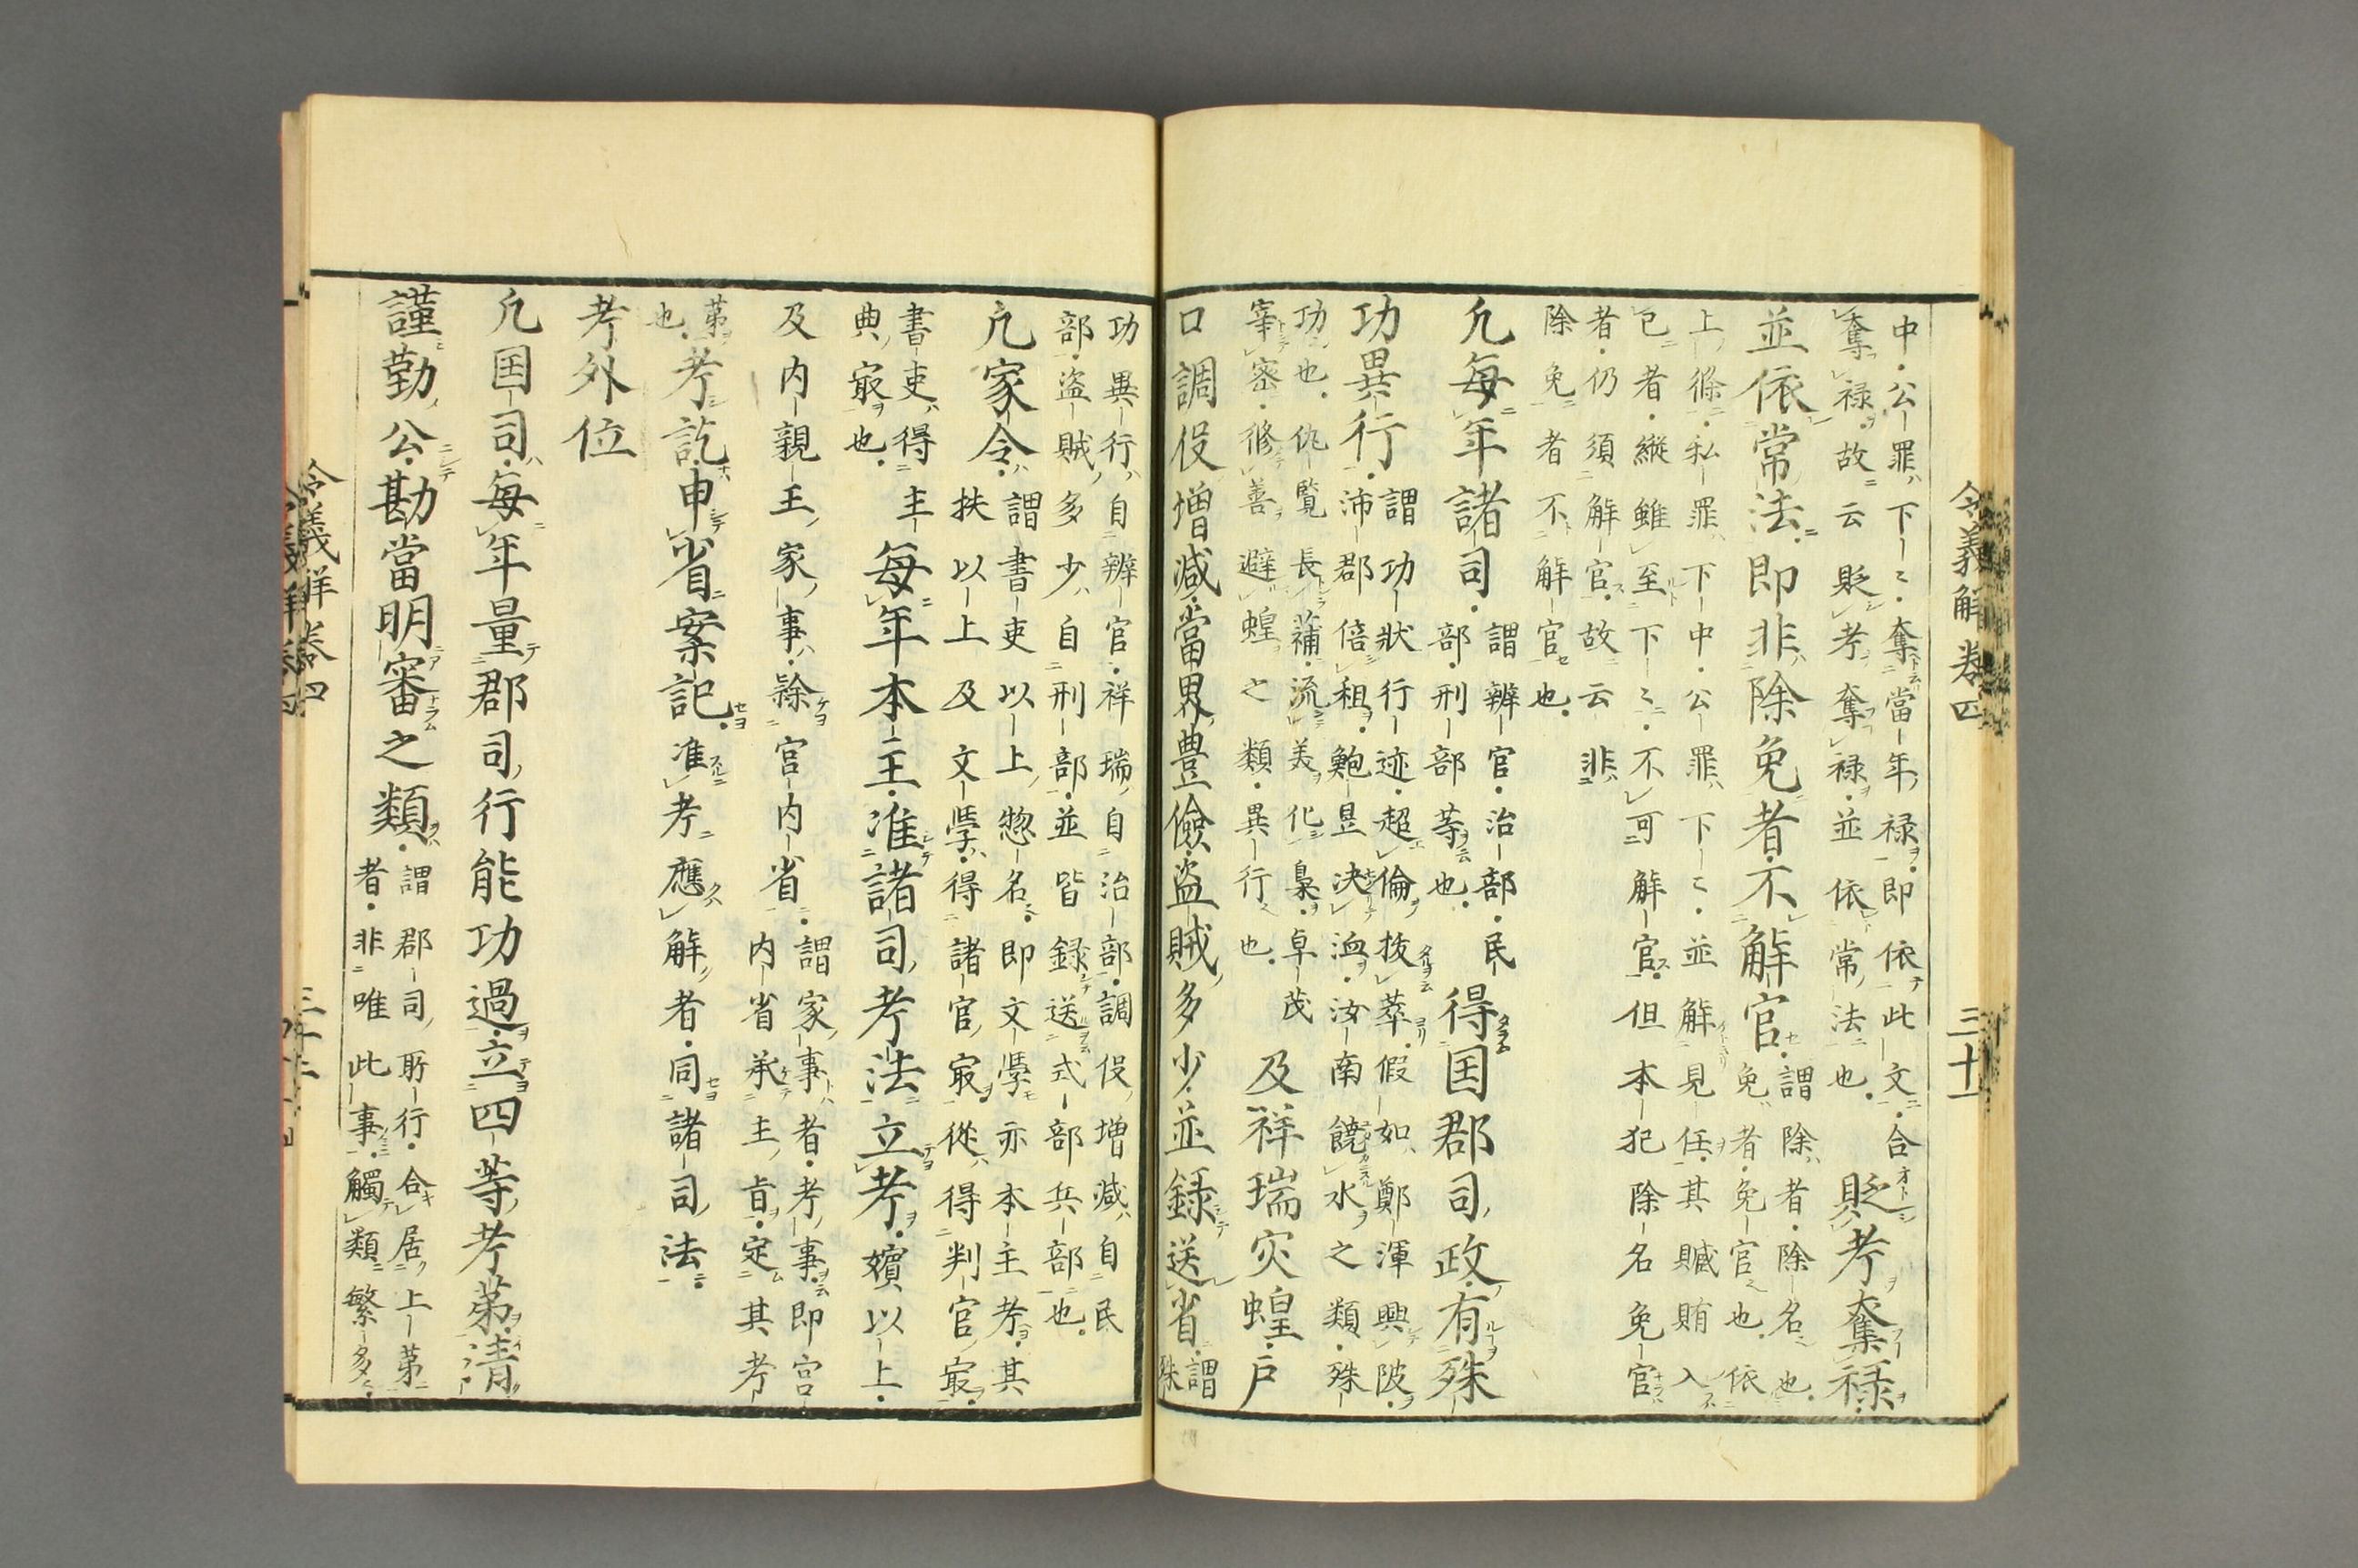 令義解卷四
三十一
中公罪下々奪當年禄即依此文合
奪禄故云貶考奪禄並依常法也
貶考奪禄
並依常法即非除免者不解官
謂除者除名也
免者免官也依
上條私罪下中公罪下々並解見任其贓賄入
已者縱雖至下々不可解官但本犯除名免官
者仍須解官故云非
除免者不解官也
凢每年諸司
謂辨官治部民
部刑部等也
得国郡司政有殊
功異行
謂功狀行迹超倫抜萃假如鄭渾興陂
沛郡倍租鮑昱決洫汝南饒水之類殊
功也仇覧長蒲流美化梟卓茂
宰密修善避蝗之類異行也
及祥瑞灾蝗戸
口調役增減當界豊儉盗賊多少並録送省
謂
殊
功異行自辨官祥瑞自治部調役增減自民
部盗賊多少自刑部並皆録送式部兵部也
凢家令
謂書吏以上惣名即文學亦本主考其
扶以上及文學得諸官冣從得判官冣
書吏得主
典冣也
每年本主准諸司考法立考嬪以上
及内親王家事隸宮内省
謂家事者考事即宮
内省承主旨定其考
第
也
考訖申省案記准考應解者同諸司法
考外位
凢国司每年量郡司行能功過立四等考第清
謹勤公勘當明審之類
謂郡司所行合居上第
者非唯此事觸類繁多
令義解卷四